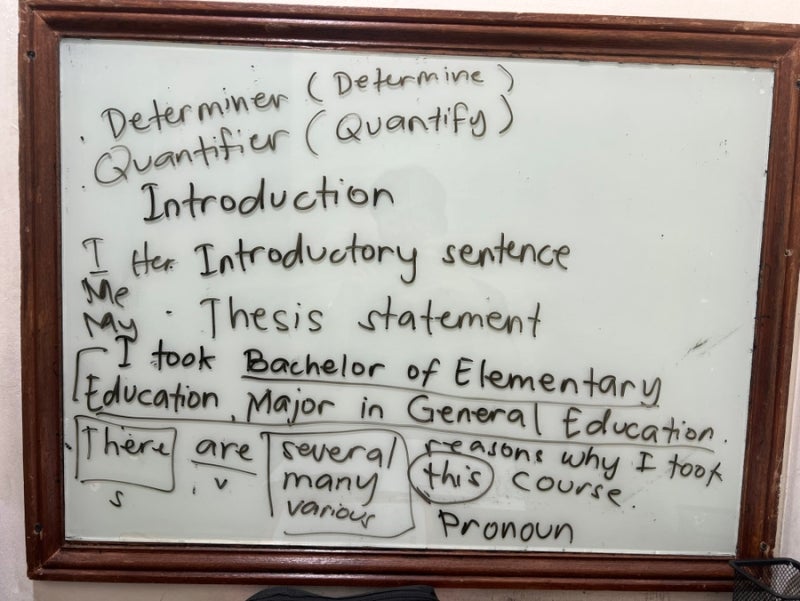 . Determiner (Determine)
. Quantifier (Quantify)
Introduction
I Her. Introductory sentence
Me
My . Thesis statement
I took Bachelor of Elementary
Education, Major in General Education.
. There are several reasons why I took
many this course.
s v various Pronoun